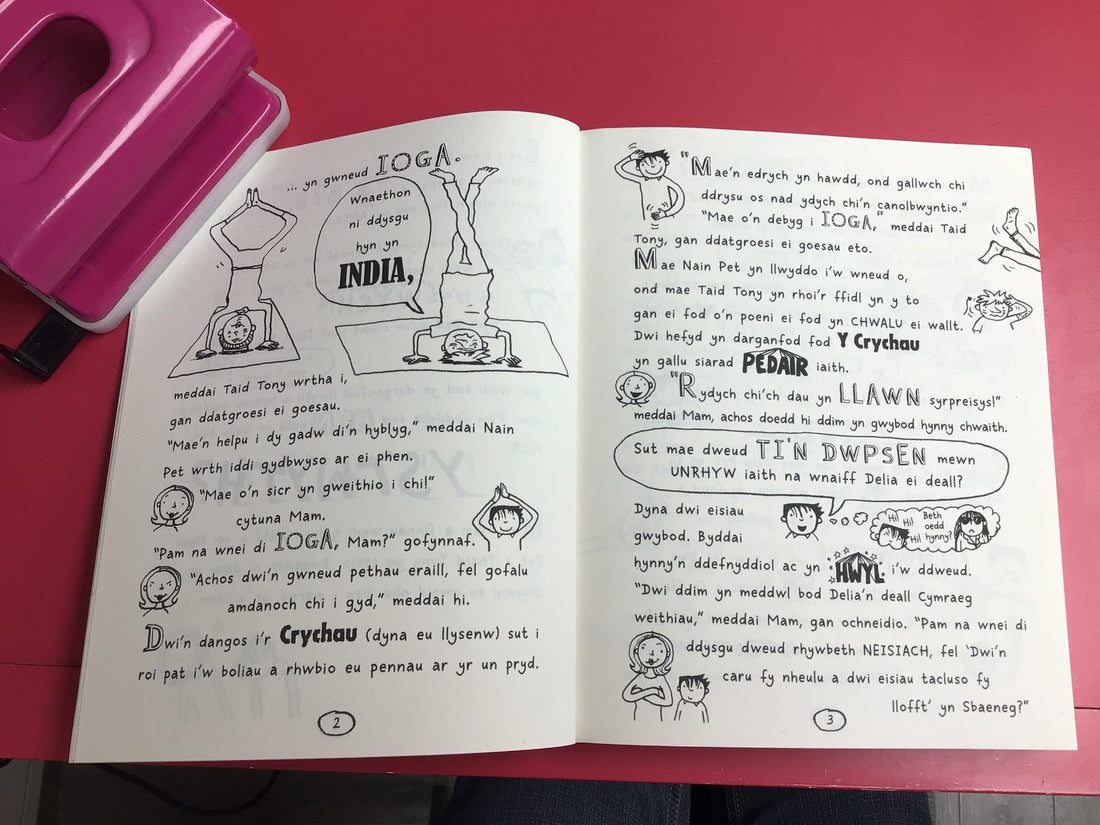 ... yn gwneud IOGA.
Wnaethon
ni ddysgu
hyn yn
INDIA,
meddai Taid Tony wrtha i,
gan ddatgroesi ei goesau.
"Mae'n helpu i dy gadw di'n hyblyg," meddai Nain
Pet wrth iddi gydbwyso ar ei phen.
"Mae o'n sicr yn gweithio i chi!"
cytuna Mam.
"Pam na wnei di IOGA, Mam?" gofynnaf.
"Achos dwi'n gwneud pethau eraill, fel gofalu
amdanoch chi i gyd," meddai hi.
Dwi'n dangos i'r Crychau (dyna eu llysenw) sut i
roi pat i'w boliau a rhwbio eu pennau ar yr un pryd.
2
"Mae'n edrych yn hawdd, ond gallwch chi
ddrysu os nad ydych chi'n canolbwyntio."
"Mae o'n debyg i IOGA," meddai Taid
Tony, gan ddatgroesi ei goesau eto.
Mae Nain Pet yn llwyddo i'w wneud o,
ond mae Taid Tony yn rhoi'r ffidl yn y to
gan ei fod o'n poeni ei fod yn CHWALU ei wallt.
Dwi hefyd yn darganfod fod Y Crychau
yn gallu siarad PEDAIR iaith.
"Rydych chi'ch dau yn LLAWN syrpreisys!"
meddai Mam, achos doedd hi ddim yn gwybod hynny chwaith.
Sut mae dweud TI'N DWPSEN mewn
UNRHYW iaith na wnaiff Delia ei deall?
Dyna dwi eisiau
gwybod. Byddai
Hi! Hi!
Hi!
Beth
oedd
hynny?
hynny'n ddefnyddiol ac yn HWYL i'w ddweud.
"Dwi ddim yn meddwl bod Delia'n deall Cymraeg
weithiau," meddai Mam, gan ochneidio. "Pam na wnei di
ddysgu dweud rhywbeth NEISIACH, fel 'Dwi'n
caru fy nheulu a dwi eisiau tacluso fy
llofft' yn Sbaeneg?"
3